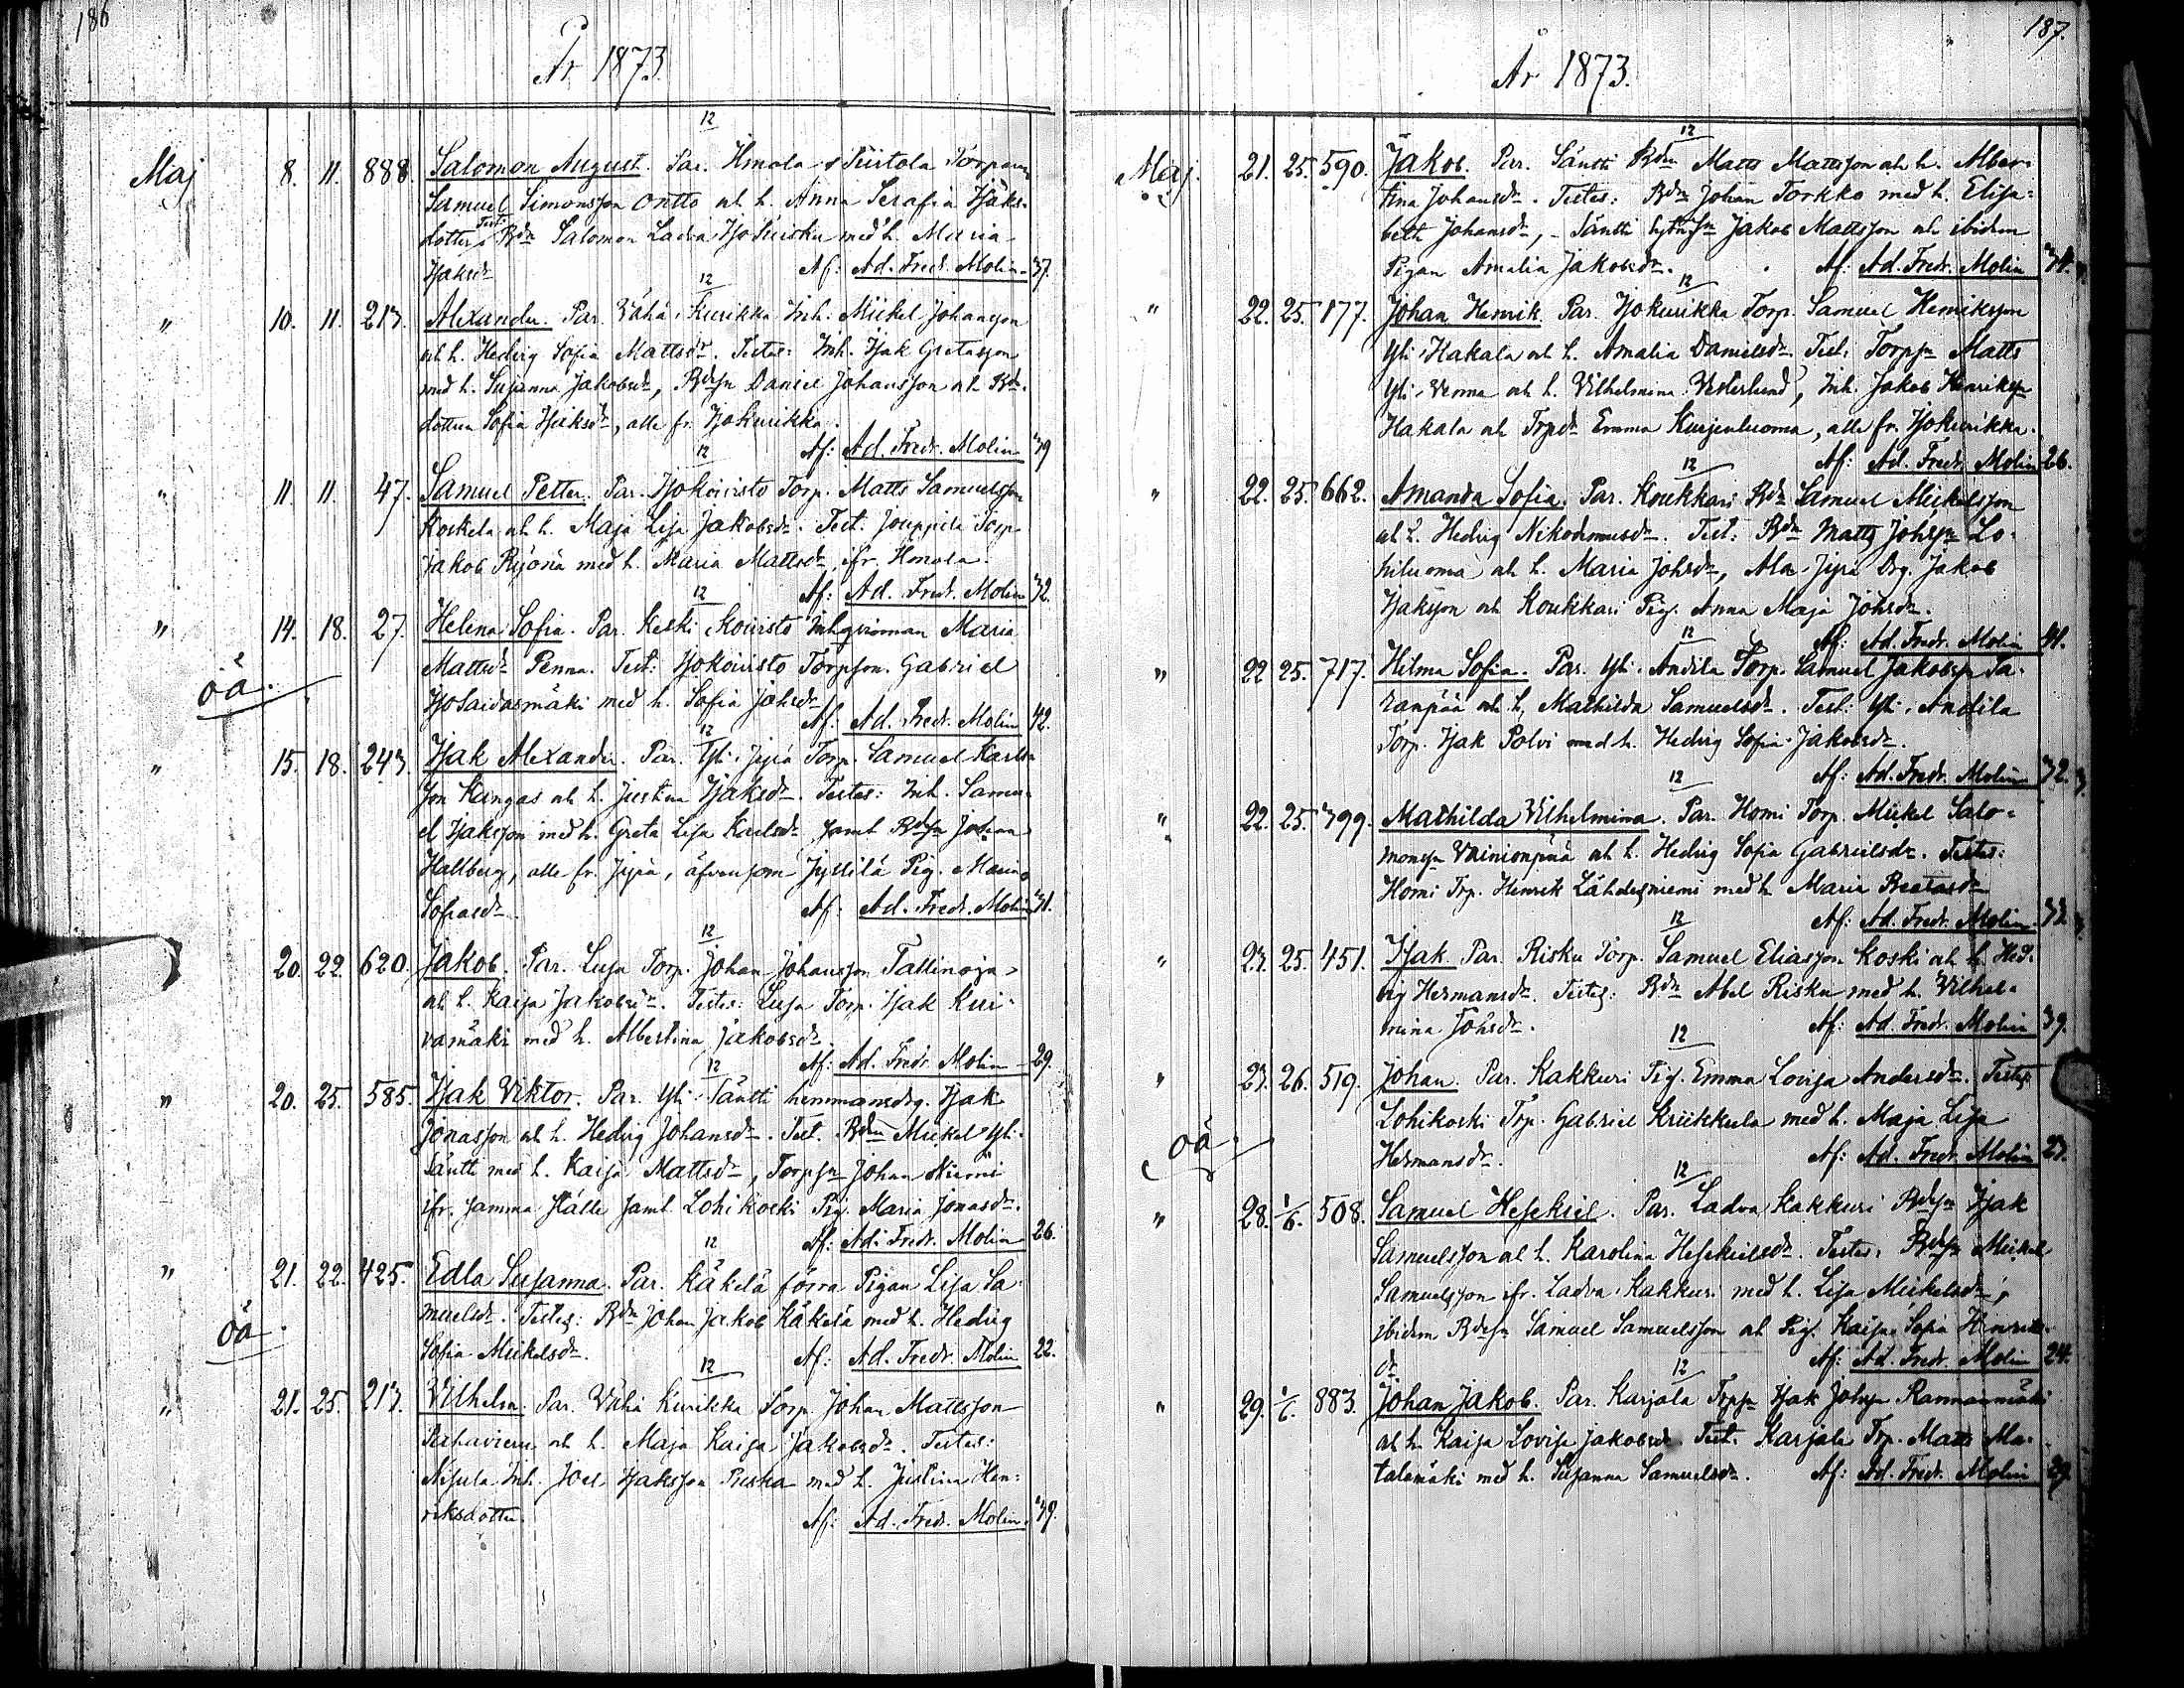 186
År 1873.
12
Maj 8. 11. 888. Salomon August. Par. Ilmola Torpare
Samuel Simonsson Ontto och h. Anna Serafia Isaks-
dotter, Test: Bdn Salomon Ladva Isosuisku med h. Maria
Isaksdr Af: Ad. Fredr. Molin 37.
12
" 10. 11. 213. Alexander. Par. Vähä-Kurikka Inh. Mickel Johansson
och h. Hedvig Sofia Mattsdr. Testes: Inh. Isak Gretasson
med h. Susanna Jakobsdr, Bdesn Daniel Johansson och Bde-
dottern Sofia Isaksdr, alle fr. Isokurikka.
Af: Ad. Fredr. Molin 39
12
" 11. 11. 47. Samuel Petter. Par. Isokoivisto Torp. Matts Samuelsson
Koskela och h. Maja Lisa Jakobsdr. Test. Jouppila Torp.
Jakob med h. Maria Mattsdr, ifr. Ilmola.
Af: Ad. Fredr. Molin 32.
12
" 14. 18. 27. Helena Sofia. Par. Keski-Koivisto Inhqvinnan Maria
Mattsdr Penna. Test: Isokoivisto Torpson Gabriel
oä. Isosaidasmäki med h. Sofia Johsdr
Af: Ad. Fredr. Molin 42.
12
" 15. 18. 243. Isak Alexander. Par. Yli-Jyrä Torp. Samuel Karls-
son Kangas och h. Justina Isaksdr. Testes: Inh. Samu-
el Isaksson med h. Greta Lisa Karlsdr samt Bdesn Johan
Hallberg, alle fr. Jyrä, äfvensom Jyllilä Pig. Maria
Sofiasdr Af: Ad. Fredr. Molin 31.
12
" 20. 22. 620. Jakob. Par. Luja Torp. Johan Johansson Tallinoja
och h. Kaisa Jakobsdr. Testes: Luja Torp. Isak Kui-
vamäki med h. Albertina Jakobsdr.
Af: Ad. Fredr. Molin 29.
12
" 20. 25. 585. Isak Viktor. Par. Yli-Säntti hemmansdrg. Isak
Jonasson och h. Hedvig Johansdr. Test. Bdn Mickel Yli-
Säntti med h. Kaisa Mattsdr, Torpsn Johan Niemi
ifr. samma ställe samt Lohikoski Pig. Maria Jonasdr.
Af: Ad. Fredr. Molin 26.
12
" 21. 22. 425. Edla Susanna. Par. Käkelä förra Pigan Lisa Sa-
muelsdr. Testes: Bdn Johan Jakob Käkelä med h. Hedvig
oä. Sofia Mickelsdr. Af: Ad. Fredr. Molin 22.
12
" 21. 25. 213. Vilhelm. Par. Vähä Kurikka Torp. Johan Mattsson
och h. Maja Kaisa Jakobsdr. Testes:
Nisula Inh. Joel Isaksson Pieska med h. Justina Hen-
riksdotter. Af: Ad. Fredr. Molin. 39.
187.
År 1873.
12
Maj. 21. 25. 590. Jakob. Par. Säntti Bdn Matts Mattsson och h. Alber-
tina Johansdr. Testes: Bdn Johan Torkko med h. Elisa-
beth Johansdr, Säntti Jakob Mattsson och ibidem
Pigan Amalia Jakobsdr. Af: Ad. Fredr. Molin 34.
12
" 22. 25. 177. Johan Henrik. Par. Isokurikka Torp. Samuel Henriksson
Yli-Hakala och h. Amalia Danielsdr. Test: Torpsn Matts
Yli-Venna och h. Vilhelmina Vesterlund, Inh. Jakob Henriksn
Hakala och Trpdr Emma Kurjenluoma, alle fr. Isokurikka.
Af: Ad. Fredr. Molin 26.
12
" 22. 25. 662. Amanda Sofia. Par. Koukkari Bdn Samuel Mickelsson
och h. Hedvig Nikodemusdr. Test: Bdn Matts Johssn Lo-
hiluoma och h. Maria Johsdr, Ala-Jyrä Drg. Jakob
Isaksson och Koukkari Pig. Anna Maja Johsdr.
Af: Ad. Fredr. Molin 41.
12
" 22 25. 717. Hilma Sofia. Par. Yli-Andila Torp. Samuel Jakobssn Sa-
ranpää och h. Mathilda Samuelsdr. Test: Yli-Andila
Torp. Isak Polvi med h. Hedvig Sofia Jakobsdr.
Af: Ad. Fredr. Molin 32.
12
" 22. 25. 399. Mathilda Vilhelmina. Par. Homi Torp. Mickel Salo-
monsn Vainionpää och h. Hedvig Sofia Gabrielsdr. Testes:
Homi Trp. Henrik Lähdesniemi med h. Maria Beatasdr
Af: Ad. Fredr. Molin 33.
12
" 23. 25. 451. Isak. Par. Risku Torp. Samuel Eliasson Koski och h. Hed-
vig Hermansdr. Testes: Bdn Abel Risku med h. Vilhel-
mina Johsdr. Af: Ad. Fredr. Molin 39.
12
" 23. 26. 519. Johan. Par. Kakkuri Pig. Emma Lovisa Andersdr. Testes
Lohikoski Trp. Gabriel Kriikkula med h. Maja Lisa
oä. Hermansdr. Af: Ad. Fredr. Molin 23.
12
" 28. 1/6. 508. Samuel Hesekiel. Par. Ladva Kakkuri Bdesn Isak
Samuelsson och h. Karolina Hesekielsdr. Testes: Bdesn Mickel
Samuelsson ifr. Ladva-Kakkuri med h. Lisa Mickelsdr,
ibidem Bdesn Samuel Samuelsson och Pig. Kaisa Sofia Henriks-
dr Af: Ad. Fredr. Molin 24.
12
" 29. 1/6. 883. Johan Jakob. Par. Karjala Trpsn Isak Johssn Rannanmäki
och h. Kaisa Lovisa Jakobsdr. Test. Karjala Trp. Matts Ma-
talamäki med h. Susanna Samuelsdr. Af: Ad. Fredr. Molin 29.